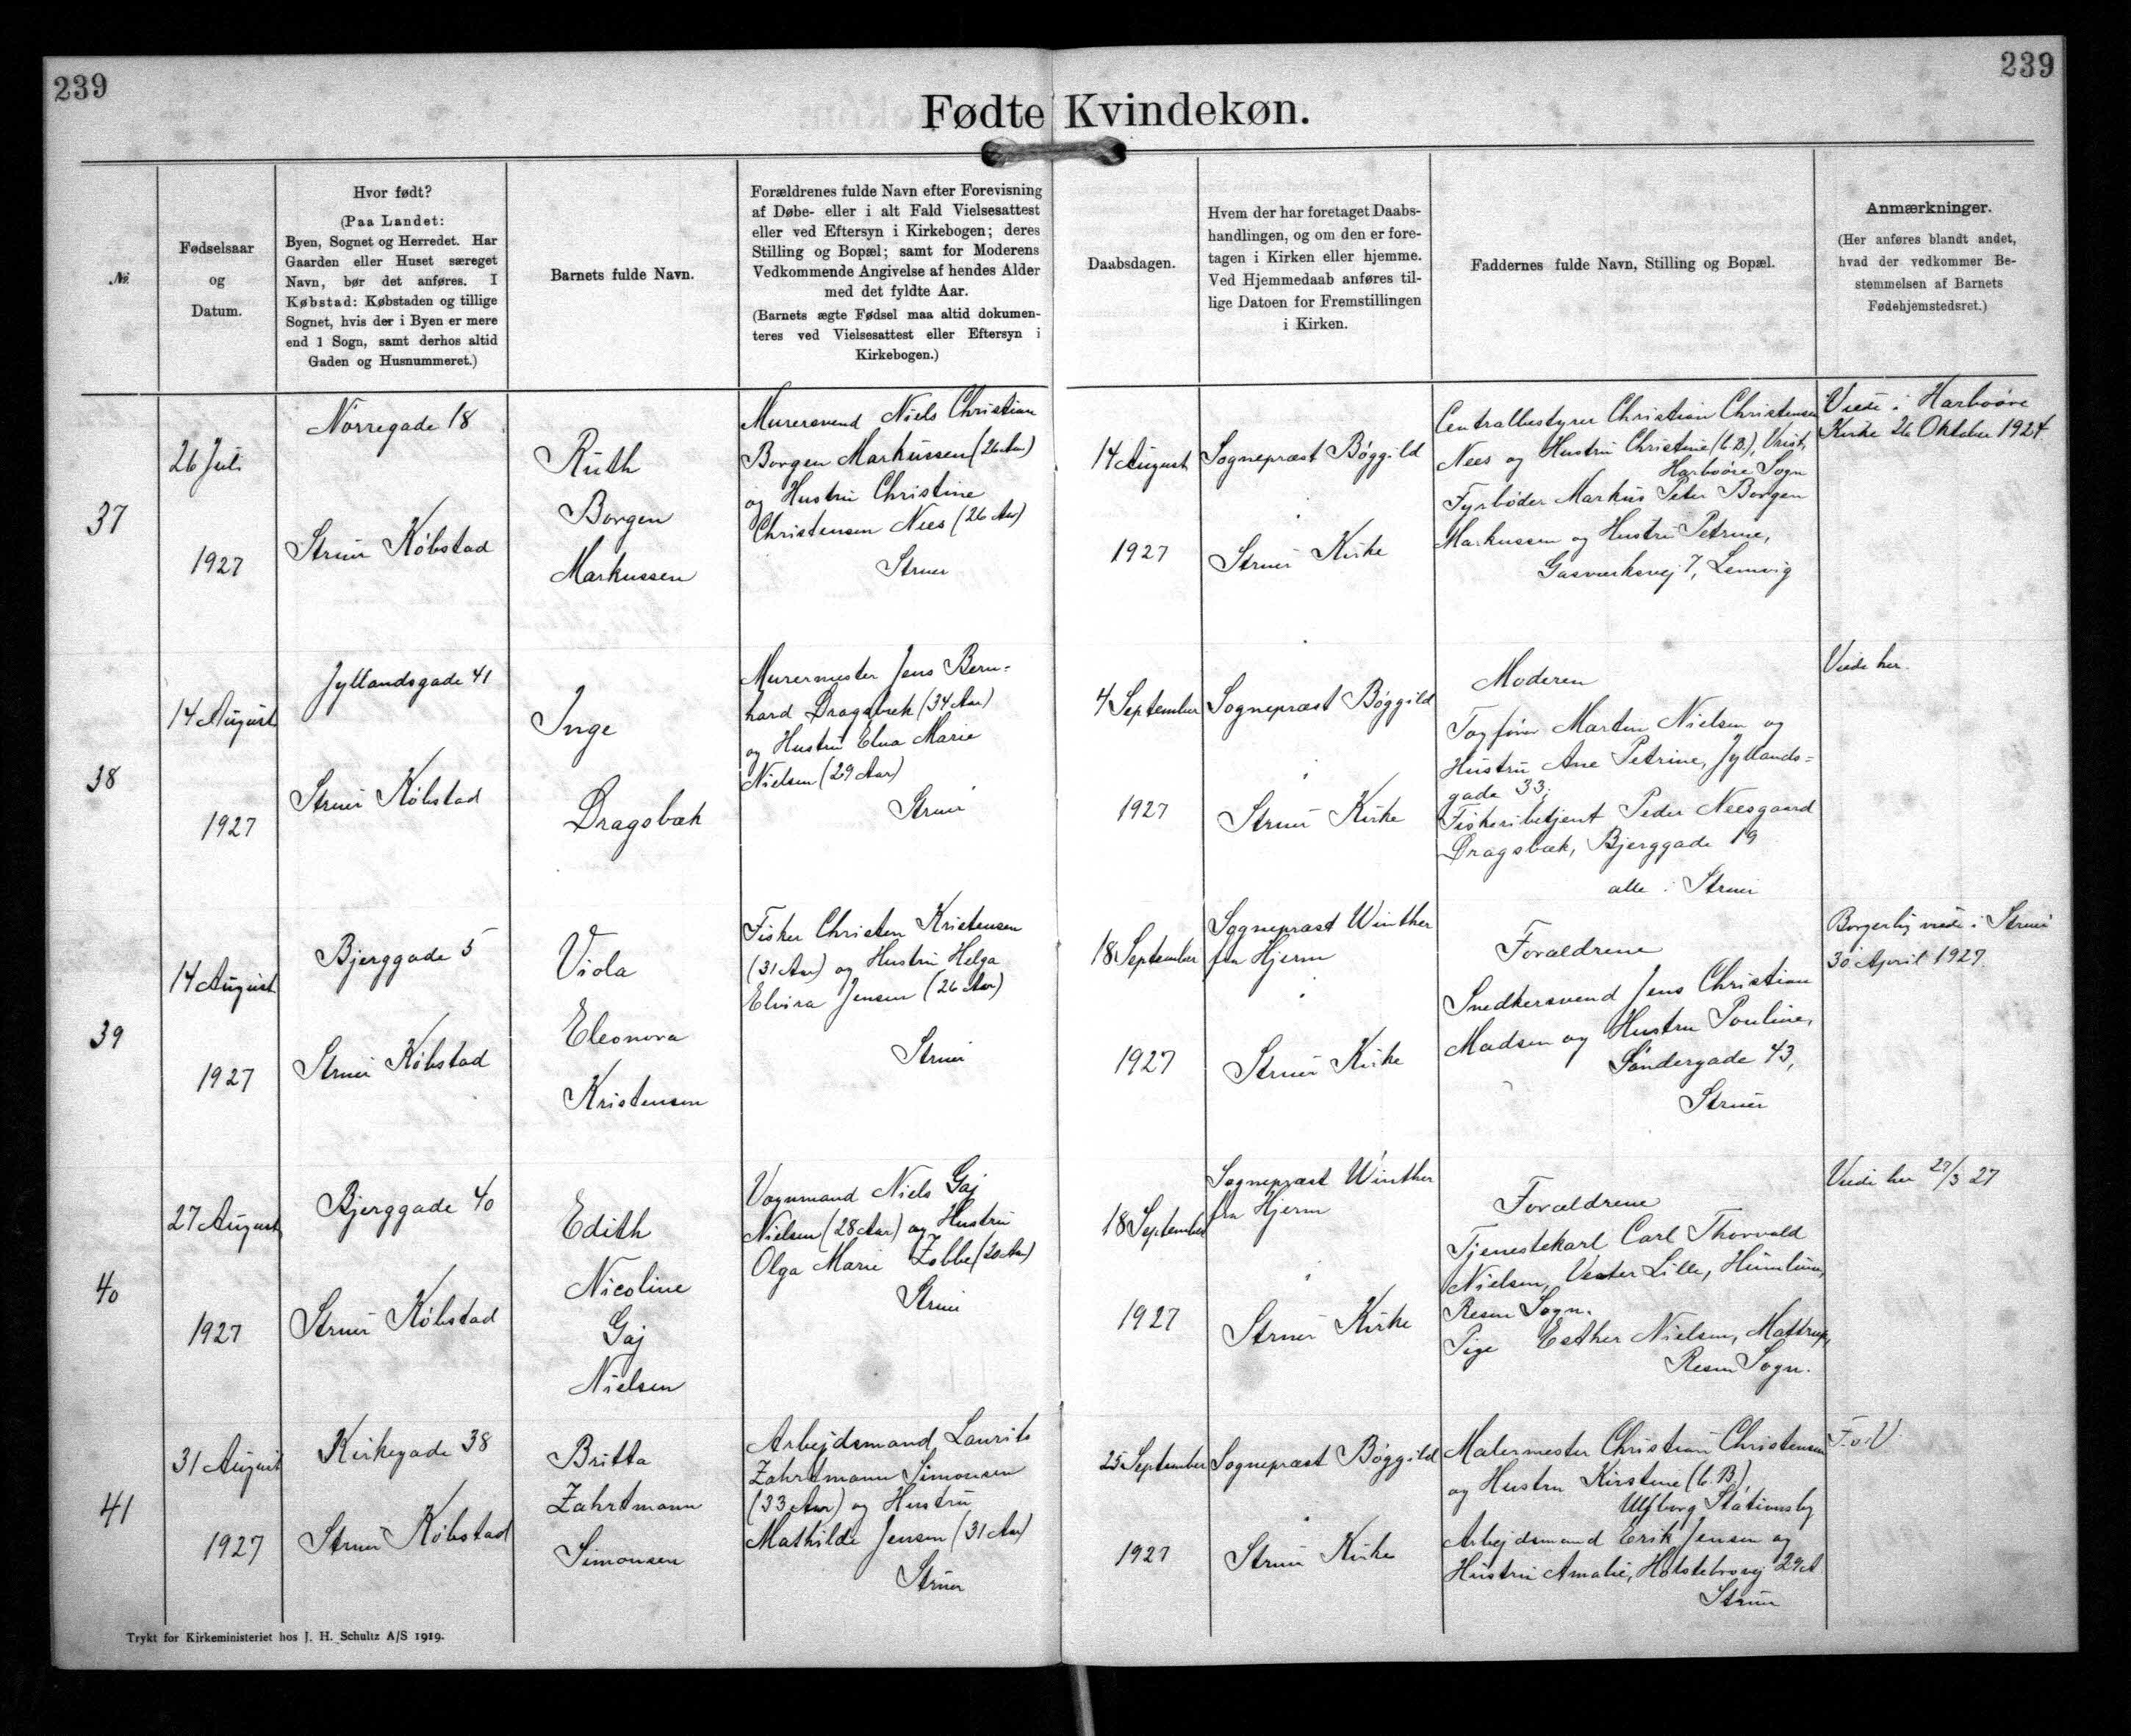 239
239
Fødte Kvindekøn.
№
Fødselsaar
og
Datum.
Hvor født?
(Paa Landet:
Byen, Sognet og Herredet. Har
Gaarden eller Huset særeget
Navn, bør det anføres. I
Købstad: Købstaden og tillige
Sognet, hvis der i Byen er mere
end 1 Sogn, samt derhos altid
Gaden og Husnummeret.)
Barnets fulde Navn.
Forældrenes fulde Navn efter Forevisning
af Døbe- eller i alt Fald Vielsesattest
eller ved Eftersyn i Kirkebogen; deres
Stilling og Bopæl; samt for Moderens
Vedkommende Angivelse af hendes Alder
med det fyldte Aar.
(Barnets ægte Fødsel maa altid dokumen-
teres ved Vielsesattest eller Eftersyn i
Kirkebogen.)
Daabsdagen.
Hvem der har foretaget Daabs-
handlingen, og om den er fore-
tagen i Kirken eller hjemme.
Ved Hjemmedaab anføres til-
lige Datoen for Fremstillingen
i Kirken.
Faddernes fulde Navn, Stilling og Bopæl.
Anmærkninger.
(Her anføres blandt andet,
hvad der vedkommer Be-
stemmelsen af Barnets
Fødehjemstedsret.)
37
26 Juli
1927
Nørregade 18
Struer Købstad
Ruth
Borgen
Markussen
Murersvend Niels Christian
Borgen Markussen (26 Aar)
og Hustru Christine
Christensen Nees (26 Aar)
Struer
14 August
1927
Sognepræst Bøggild
i
Struer Kirke
Centralbestyrer Christian Christensen
Nees og Hustru Christine (f. B.), Vrist,
Harboøre Sogn
Fyrbøder Markus Peter Borgen
Markussen og Hustru Petrine,
Gasværksvej 7, Lemvig
Viede i Harboøre
Kirke 26 Oktober 1924
38
14 August
1927
Jyllandsgade 41
Struer Købstad
Inge
Dragsbæk
Murermester Jens Bern-
hard Dragsbæk (34 Aar)
og Hustru Elna Marie
Nielsen (29 Aar)
Struer
4 September
1927
Sognepræst Bøggild
i
Struer Kirke
Moderen
Togfører Marten Nielsen og
Hustru Ane Petrine, Jyllands-
gade 33;
Fiskeribetjent Peder Neesgaard
Dragsbæk, Bjerggade 19
alle i Struer
Viede her.
39
14 August
1927
Bjerggade 5
Struer Købstad
Viola
Eleonora
Kristensen
Fisker Christen Kristensen
(31 Aar) og Hustru Helga
Elvira Jensen (26 Aar)
Struer
18 September
1927
Sognepræst Winther
fra Hjerm
i
Struer Kirke
Forældrene
Snedkersvend Jens Christian
Madsen og Hustru Pouline,
Søndergade 43,
Struer
Borgerlig viede i Struer
30 April 1927
40
27 August
1927
Bjerggade 40
Struer Købstad
Edith
Nicoline
Gaj
Nielsen
Vognmand Niels Gaj
Nielsen (28 Aar) og Hustru
Olga Marie Zobbe (20 Aar)
Struer
18 September
1927
Sognepræst Winther
fra Hjerm
i
Struer Kirke
Forældrene
Tjenestekarl Carl Thorvald
Nielsen, Vester Lille, Humlum,
Resen Sogn.
Pige Esther Nielsen, Mattrup,
Resen Sogn.
Viede her 27/3 27
41
31 August
1927
Kirkegade 38
Struer Købstad
Britta
Zahrtmann
Simonsen
Arbejdsmand Laurits
Zahrtmann Simonsen
(33 Aar) og Hustru
Mathilde Jensen (31 Aar)
Struer
25 September
1927
Sognepræst Bøggild
i
Struer Kirke
Malermester Christian Christensen
og Hustru Kirstine (f. B.)
Ulfborg Stationsby
Arbejdsmand Erik Jensen og
Hustru Amalie, Holstebrovej 29A
Struer
F. o. V.
Trykt for Kirkeministeriet hos J. H. Schultz A/S 1919.